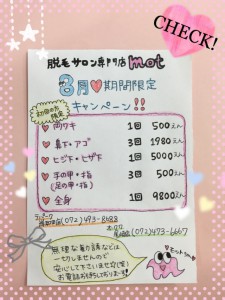 CHECK!
脱毛サロン専門店 mot
8月♡期間限定
キャンペーン!!
初回の方限定
♡ 両ワキ 1回 500えん
♡ 鼻下・アゴ 3回 1980えん
♡ ヒジ下・ヒザ下 1回 5000えん
♡ 手の甲・指 (足の甲・指) 3回 500えん
♡ 全身 1回 9800えん
(072)493-8688
(072)493-6667
無理な勧誘などは
一切しませんので
安心して下さいませ
お電話お待ちしております